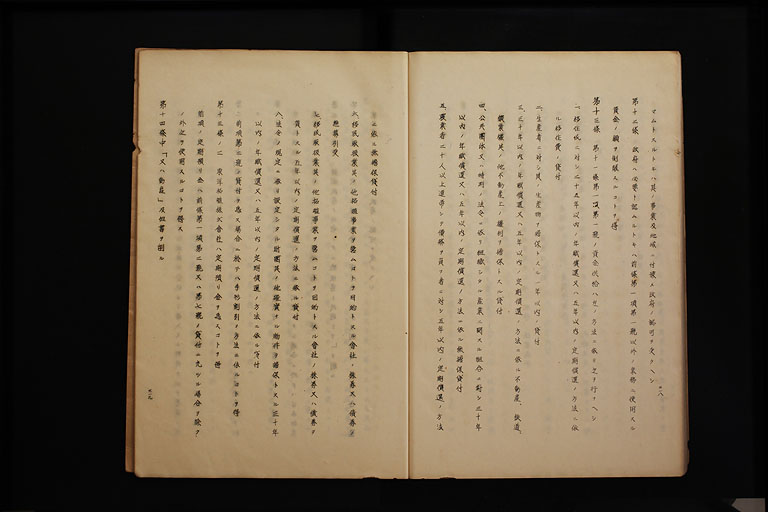 セムトスルトキハ其ノ事業及地域ニ付豫メ政府ノ認可ヲ受クベシ
第十二條 政府ハ必要ト認ムルトキハ前條第一項第一號以外ノ業務ニ使用スル
資金ノ額ヲ制限スルコトヲ得
第十三條 第十一條第一項第一號ノ資金供給ハ左ノ方法ニ依リ之ヲ行フベシ
一、移住民ニ対シ二十五年以内ノ年賦償還又ハ五年以内ノ定期償還ノ方法ニ依
ル移住費ノ貸付
二、生産者ニ対シ其ノ生産物ヲ擔保トスル一年以内ノ貸付
三、三十年以内ノ年賦償還又ハ五年以内ノ定期償還ノ方法ニ依ル不動産、鉄道、
鑛業權其ノ他不動産上ノ權利ヲ擔保トスル貸付
四、公共團体又ハ特別ノ法令ニ依リ組織シタル産業ニ關スル組合ニ対シ三十年
以内ノ年賦償還又ハ五年以内ノ定期償還ノ方法ニ依ル無擔保貸付
五、農業者二十人以上連帯シテ債務ヲ負フ者ニ対シ五年以内ノ定期償還ノ方法
ニ依ル無擔保貸付
六、移民取扱業其ノ他拓殖事業ヲ營ムコトヲ目的トスル會社ノ株券又ハ債券ノ
應募引受
七、移民取扱業其ノ他拓殖事業ヲ營ムコトヲ目的トスル會社ノ株券又ハ債券ヲ
質トスル五年以内ノ定期償還ノ方法ニ依ル貸付
八、法令ノ規定ニ依リ設定シタル財團其ノ他確實ナル物件ヲ擔保トスル三十年
以内ノ年賦償還又ハ五年以内ノ定期償還ノ方法ニ依ル貸付
前項第二號ノ貸付ヲ為ス場合ニ於テハ手形割引ノ方法ニ依ルコトヲ得
第十三條ノ二 東洋拓殖株式會社ハ定期預リ金ヲ為スコトヲ得
前項ノ定期預リ金ハ前條第一項第二號又ハ第七號ノ貸付ニ充ツル場合ヲ除ク
ノ外之ヲ使用スルコトヲ得ス
第十四條中「又ハ動産」及但書ヲ削ル